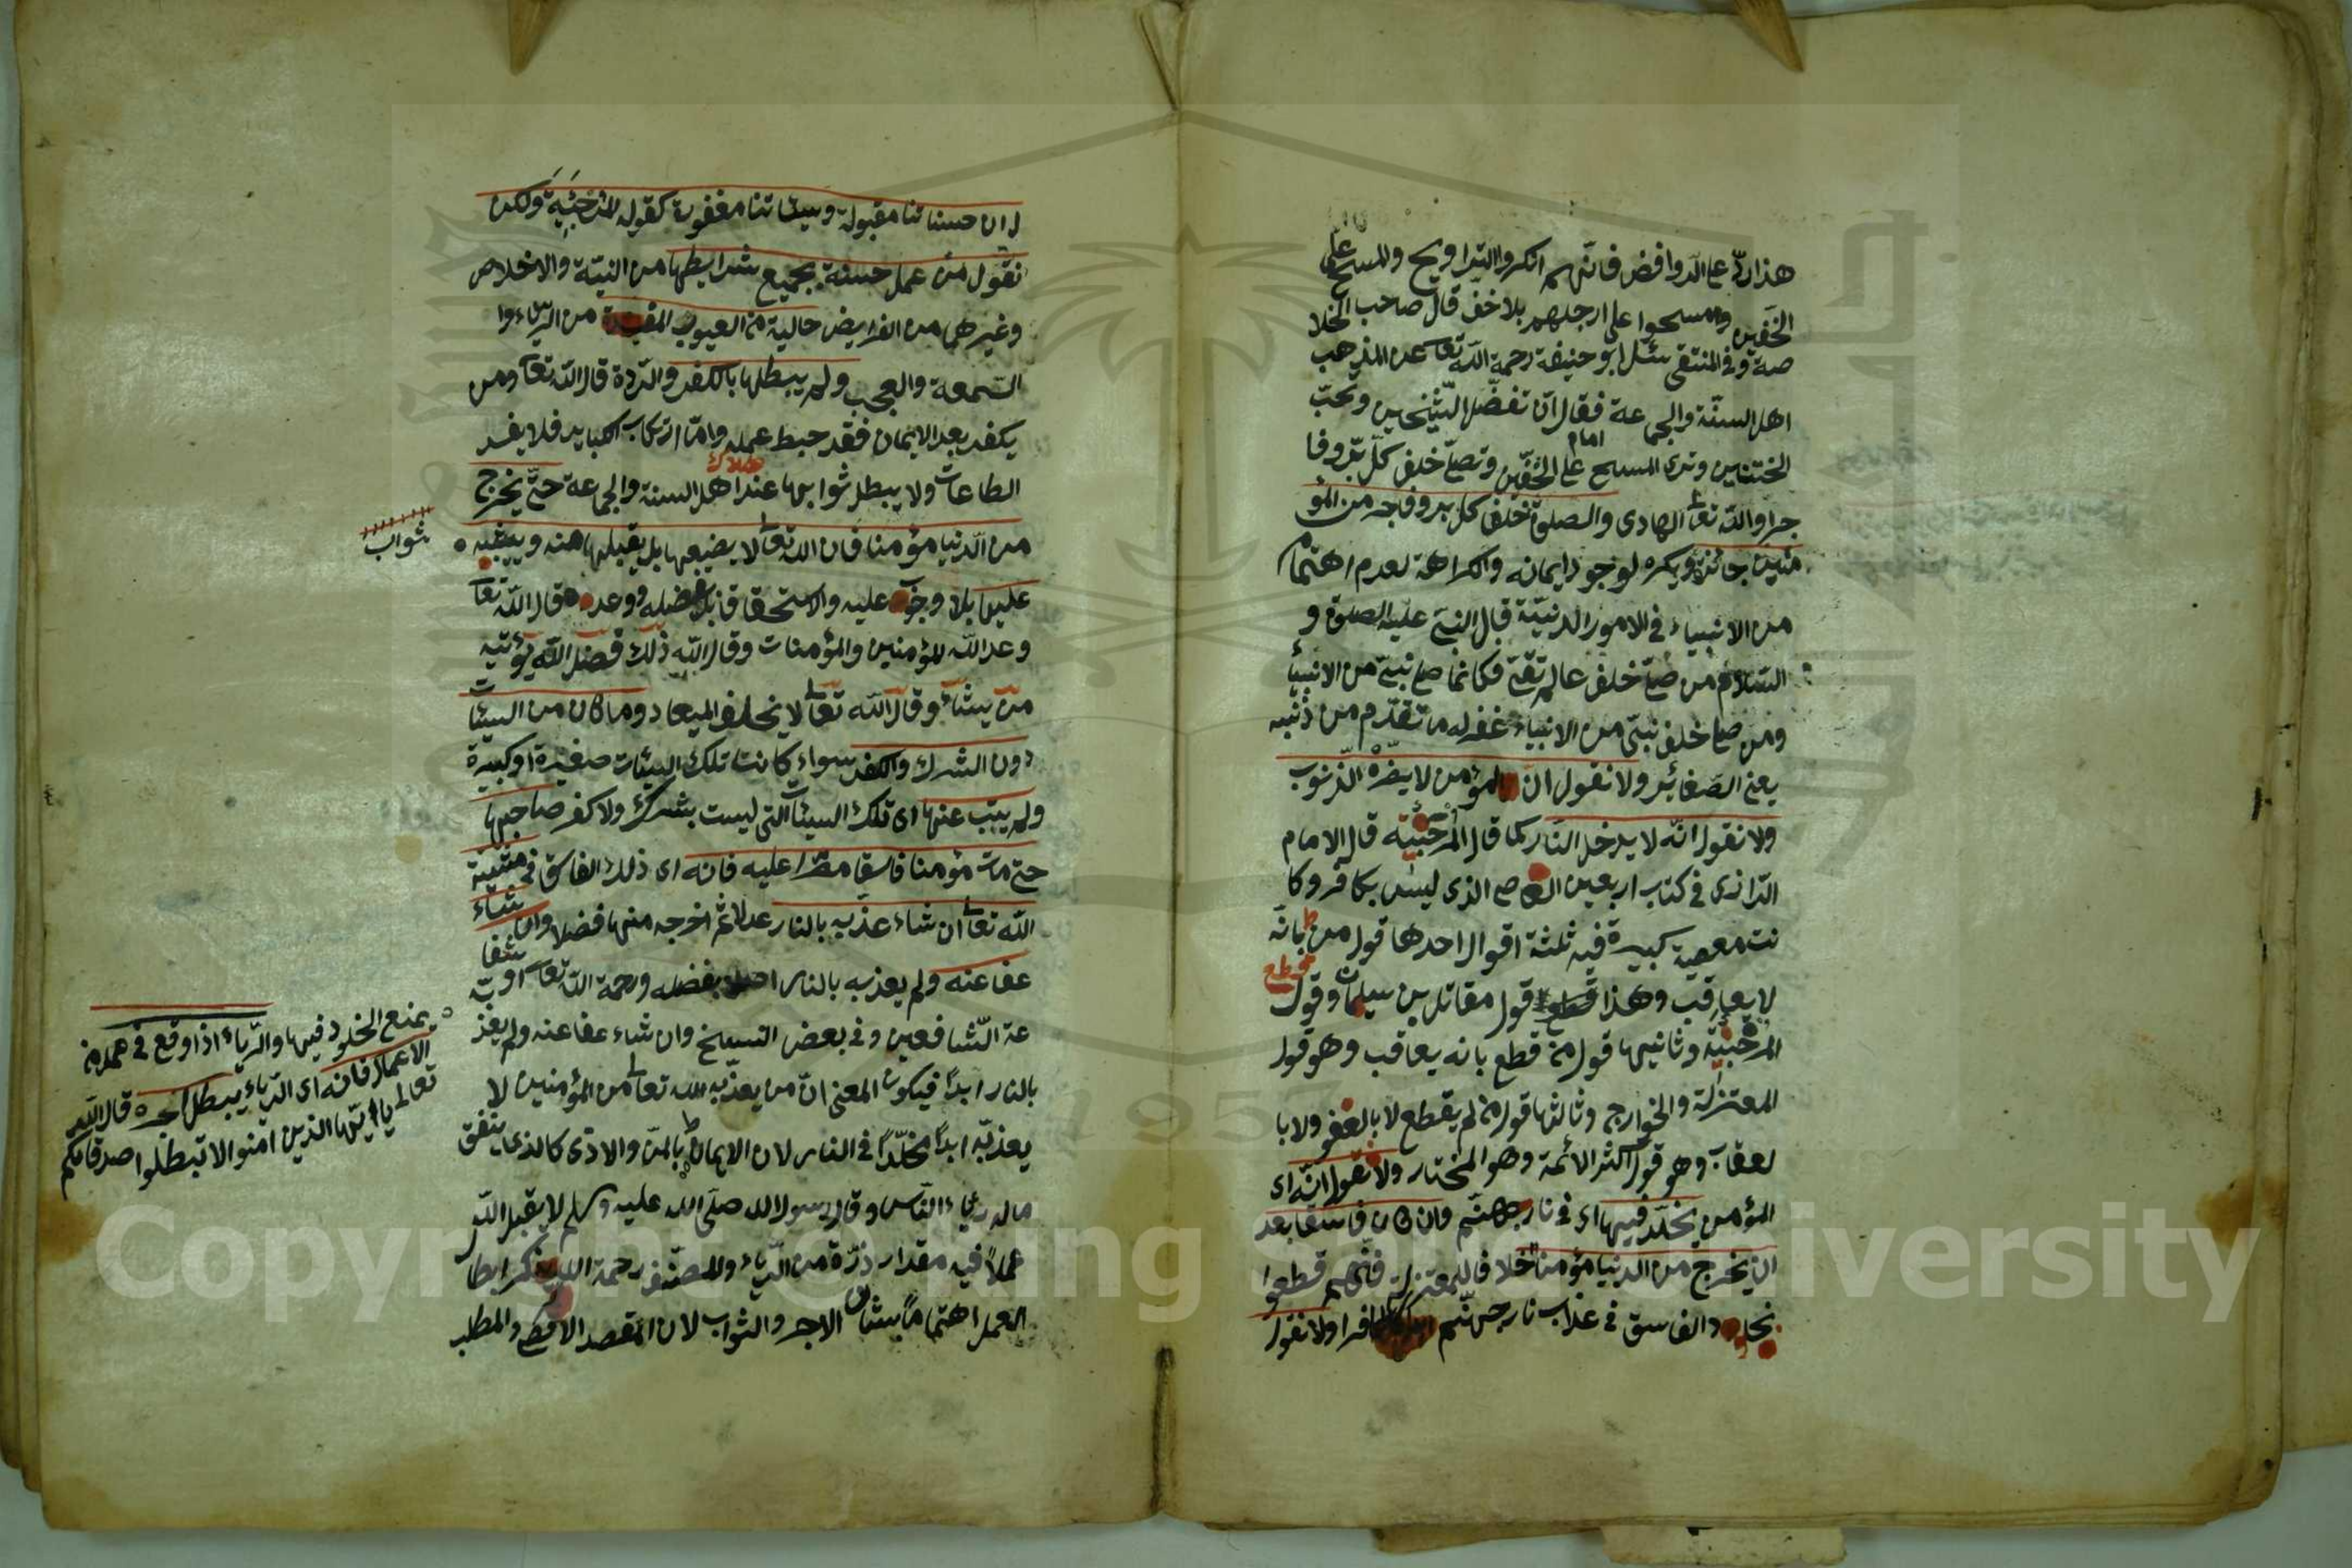 هذا ردّ على الروافض فانّهم انكروا التراويح والمسح على
الخفين ومسحوا على ارجلهم بلا خفّ قال صاحب الخلا
صة وفي المنتقى سئل ابو حنيفة رحمة اللّه تعا عن المذهب
اهل السنّة والجماعة فقال ان تفضّل الشّيخين وتحبّ
الختنين وترى المسح على الخفّين وتصلّى خلف كلّ برّ وفا
امام
جر واللّه تعالى الهادى والصلوة خلف كل بر وفاجر من المؤ
منين جائزة ويكره لوجود ايمانه والكراهة لعدم اهتمام
من الانبياء في الامور الدنيّة قال النبى عليه الصلوة و
السّلام من صلّى خلف عالم تقىّ فكانما صلى نبىّ من الانبيأ
ومن صلى خلف نبىّ من الانبياء غفر له ما تقدّم من ذنبه
يعنى الصّغائر ولا نقول انّ المؤمن لا يضرّه الذّنوب
ولا نقول انّه لا يدخل النّار كما قال المرجئية قال الامام
الرازى في كتاب اربعين العاصى الذى ليس بكافر وكا
نت معصية كبيرة فيه ثلثة اقوال احدها قول من بانّه
قطع
لا يعاقب وهذا قول مقاتل بن سيلمان وقول
المرجئيّة وثانيها قول من قطع بانه يعاقب وهو قول
المعتزلة والخوارج وثالثها قول من لم يقطع لا بالعفو ولا با
لعقاب وهو قول اكثر الائمة وهو المختار ولا نقول انّه اى
المؤمن يخلّد فيها اى في نار جهنّم وان كان فاسقا بعد
ان يخرج من الدنيا مؤمنا خلافا للمعتزلة فانّهم قطعوا
بخلود الفاسق في عذاب نار جهنّم كافرا ولا نقول
ان حسناتنا مقبولة وسيئاتنا مغفورة كقول المرجئية ولكن
نقول من عمل حسنة بجميع شرايطها من النيّة والاخلاص
وغيرهما من الفرايض خالية من العيوب المفسدة من الرّياء وا
السّمعة والعجب ولم يبطلها بالكفر والرّدة قال اللّه تعا ومن
يكفر بعد الايمان فقد حبط عمله وامّا ارتكاب الكباير فلا يفسد
هلاك
الطاعات ولا يبطل ثوابها عند اهل السنة والجماعة حتّى يخرج
من الدّنيا مؤمنا فان اللّه تعالى لا يضيعها بل يقبلها منه ويثيبه
ثواب
عليها بلا وجوب عليه والاستحقاق بل بفضله ووعده قال اللّه تعا
وعد اللّه المؤمنين والمؤمنات وقال اللّه ذلك فضل اللّه يؤتيه
من يشاء وقال اللّه تعالى لا يخلف الميعاد وما كان من السيئات
دون الشرك والكفر سواء كانت تلك السيئات صغيرة او كبيرة
ولم يتب عنها اى تلك السيئات التى ليست بشرك ولا كفر صاحبها
حتى مات مؤمنا فاسقا مصرا عليه فانه اى ذلك الفاسق في مشيئة
اللّه تعالى ان شاء عذّبه بالنار عدلا ثم اخرجه منها فضلا وان شاء
عفا عنه ولم يعذبه بالنار اصلا بفضله ورحمة اللّه تعا او بشفا
عة الشّافعين وفي بعض النسيخ وان شاء عفا عنه ولم يعذ
بالنار ابدًا فيكون المعنى انّ من يعذّبه اللّه تعالى من المؤمنين لا
يعذبّه ابدًا مخلّدًا في النار لان الايمان بالمنّ والاذى كالذى ينفق
ماله رياء النّاس وقال رسول اللّه صلّى اللّه عليه وسلم لا يقبل اللّه
عملًا فيه مقدار ذرّة من الرّياء والمصنّف رحمة اللّه ذكر ابطا
العمل اهتمامًا بشان الاجر والثواب لان المقصد الاقصى والمطلب
يمنع الخلود فيها والرّياء اذا وقع في عمل من
الاعمال فانه اى الرّياء يبطل اجره قال اللّه
تعالى يا ايّها الذين امنوا لا تبطلوا صدقاتكم
Copyright © King Saud University
195